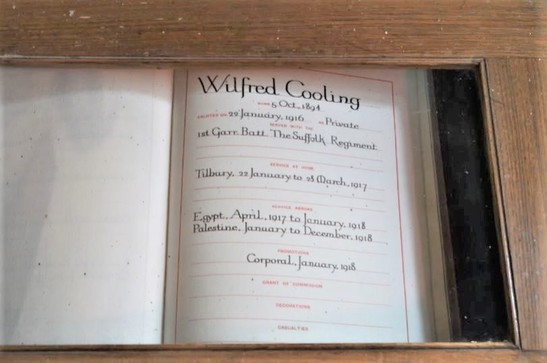 Wilfred Cooling
BORN 5 Oct., 1894
ENLISTED ON 22 January, 1916 AS Private
SERVED WITH THE
1st Garr. Batt. The Suffolk Regiment
SERVICE AT HOME
Tilbury, 22 January to 28 March, 1917
SERVICE ABROAD
Egypt, April, 1917 to January, 1918
Palestine, January to December, 1918
PROMOTIONS
Corporal, January, 1918
GRANT OF COMMISSION
DECORATIONS
CASUALTIES